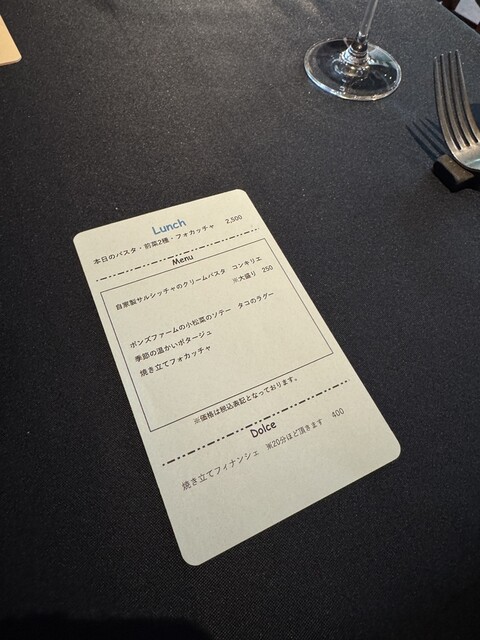 Lunch
本日のパスタ・前菜2種・フォカッチャ 2,500
Menu
自家製サルシッチャのクリームパスタ コンキリエ
※大盛り 250
ボンズファームの小松菜のソテー タコのラグー
季節の温かいポタージュ
焼き立てフォカッチャ
※価格は税込表記となっております。
Dolce
焼き立てフィナンシェ ※20分ほど頂きます 400